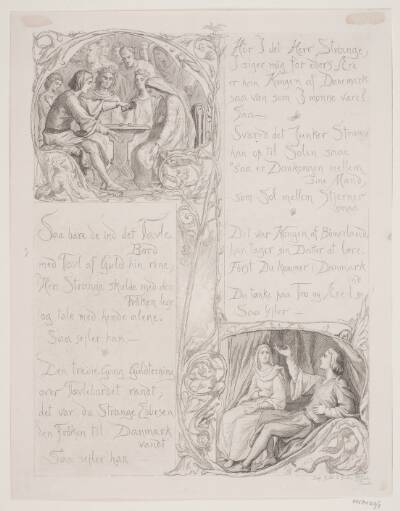 Saa bare de ind det Tavle-
Bord
med Tavl af Guld hin røne,
Her Strange skulde med den
Frøken lege
og tale med hende alene.
Saa sejler han —
Den tredie Gang Guldterning
over Tavlebordet randt,
det var da Strange Ebbesen
den Frøken til Danmark
vandt
Saa sejler han
Hør I det Herr Strange,
I siger mig for eders Ære
er hein Kongen af Danmark
saa væn som I monne være!
Saa —
Svared det Junker Strange
han op til Solen saae
"saa er Dankongen mellem
sine Mænd,
som Sol mellem Stjerner
smaa
Dit var Kongen af Bömerland
han tager sin Dater at lære.
Först Du kommer i Danmark
ind
Du tænke paa Tro og Ære
Saa sejler —